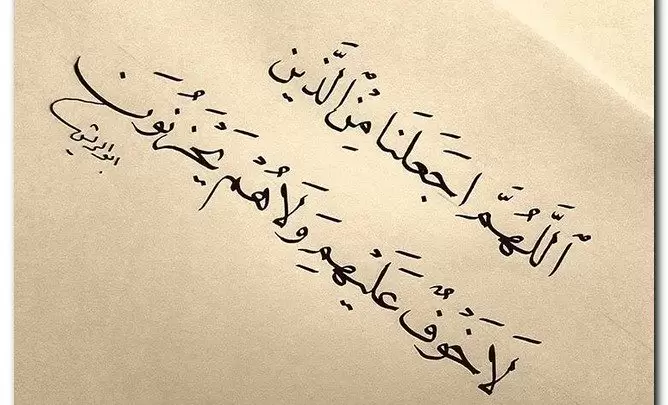 اَللَّهُمَّ اجَعَلنَا مِنْ الَّذين
لَا خَوْفٌ عَلَيْهِم وَلَا هُمْ يَحْزَنُونَ